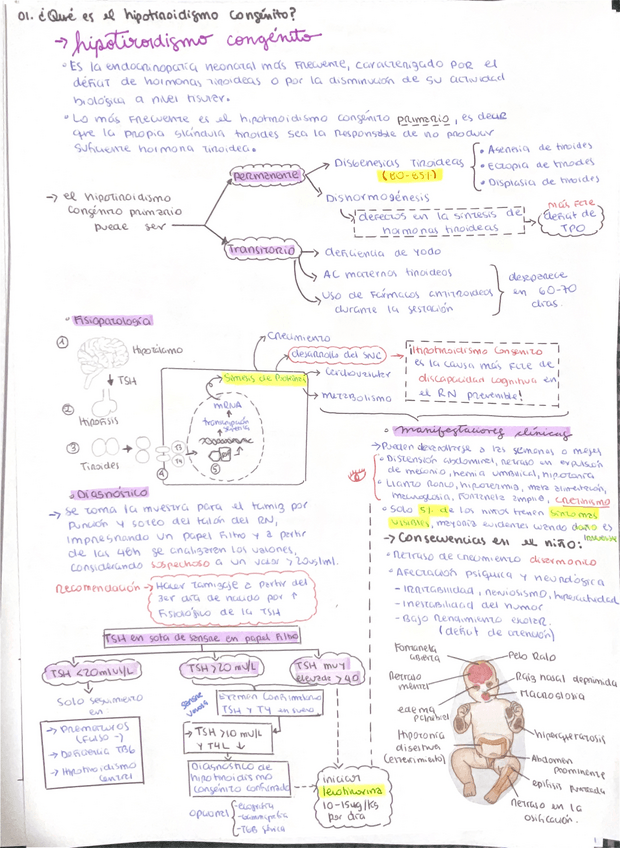 01. ¿Qué es el hipotiroidismo congénito?
→ hipotiroidismo congénito
• Es la endocrinopatía neonatal más frecuente, caracterizado por el
déficit de hormonas tiroideas o por la disminución de su actividad
biológica a nivel tisular.
• Lo más frecuente es el hipotiroidismo congénito primario, es decir
que la propia glándula tiroides sea la responsable de no producir
suficiente hormona tiroidea.
→ el hipotiroidismo
congénito primario
puede ser
Permanente
Disgenesias tiroideas
(80-85%)
• Agenesia de tiroides
• Ectopia de tiroides
• Displasia de tiroides
Dishormogénesis
defectos en la síntesis de
hormonas tiroideas
más fcte
déficit de
TPO
Transitorio
deficiencia de yodo
AC maternos tiroideos
Uso de fármacos antitiroideos
durante la gestación
desaparece
en 60-70
días.
• Fisiopatología
1
Hipotálamo
↓ TSH
2
Hipófisis
3
Tiroides
T3
T4
4
5
Síntesis de Proteínas
mRNA
transcripción
Crecimiento
desarrollo del SNC
Cardiovascular
Metabolismo
Hipotiroidismo congénito
es la causa más fcte de
discapacidad cognitiva en
el RN prevenible!
• Manifestaciones clínicas
→ Pueden desarrollarse a las semanas o meses
• Distensión abdominal, retraso en expulsión
de meconio, hernia umbilical, hipotonía
• Llanto ronco, hipotermia, mala alimentación,
macroglosia, fontanela amplia, cretinismo
• Solo 5% de los niños tienen síntomas
visibles, mayoría evidentes cuando daño es
irreversible
→ Consecuencias en el niño:
• Retraso de crecimiento disarmónico
• Afectación psíquica y neurológica
- Irritabilidad, nerviosismo, hiperactividad
- Inestabilidad del humor
- Bajo rendimiento escolar.
(déficit de atención)
• Diagnóstico
→ Se toma la muestra para el tamiz por
punción y goteo del talón del RN,
impregnando un papel filtro y a partir
de las 48h se analizaran los valores,
considerando sospechoso a un valor >
Recomendación → Hacer tamizaje a partir del
3er día de nacido por ↑
fisiológico de la TSH
TSH en gota de sangre en papel filtro
TSH <20 mlU/L
TSH >20 mU/L
TSH muy
elevada >40
Solo seguimiento
en
→ Prematuros
(Falso -)
→ Deficiencia TBG
→ Hipotiroidismo
central
sangre
venosa
Examen confirmatorio
TSH y T4 en suero
→ TSH >10 mU/L
y T4L ↓
Diagnóstico de
hipotiroidismo
congénito confirmado
opcional
- ecografía
- TGB sérica
iniciar
levotiroxina
10-15ug/kg
por día
Fontanela
abierta
Pelo Ralo
Retraso
mental
Raíz nasal deprimida
Macroglosia
edema
periorbital
hiperqueratosis
Hipotonía
digestiva
(estreñimiento)
Abdomen
prominente
epífisis punteada
Retraso en la
osificación.